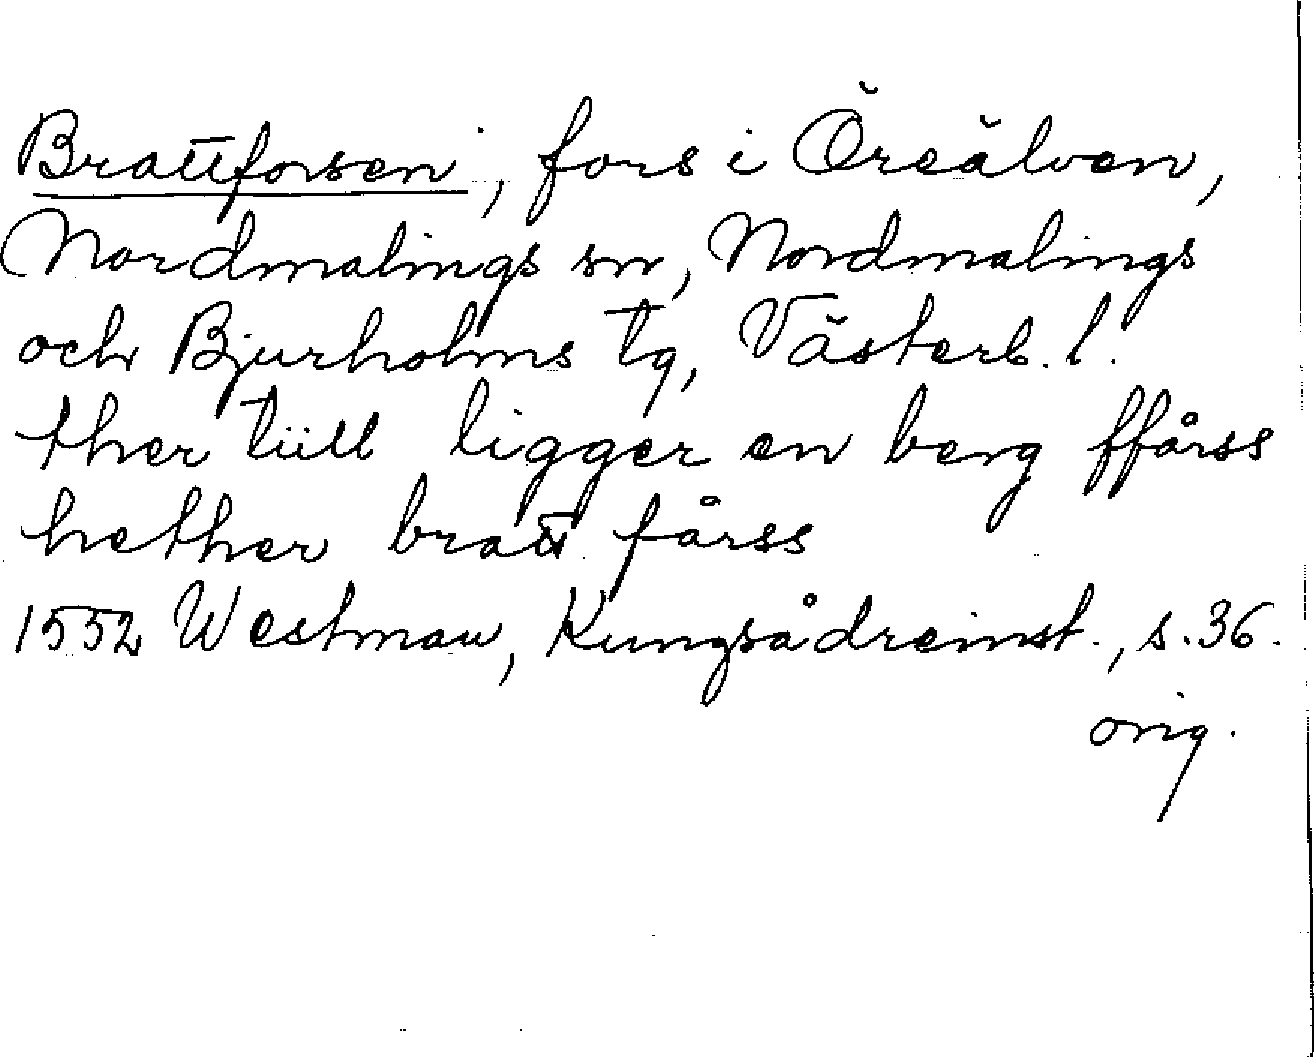 Brattforsen, fors i Öreälven,
Nordmalings sn, Nordmalings
och Bjurholms tg, Västerb. l.
ther tiill ligger en berg ffårss
hether bratt fårss
1552 Westman, Kungsådreinst., s. 36.
orig.